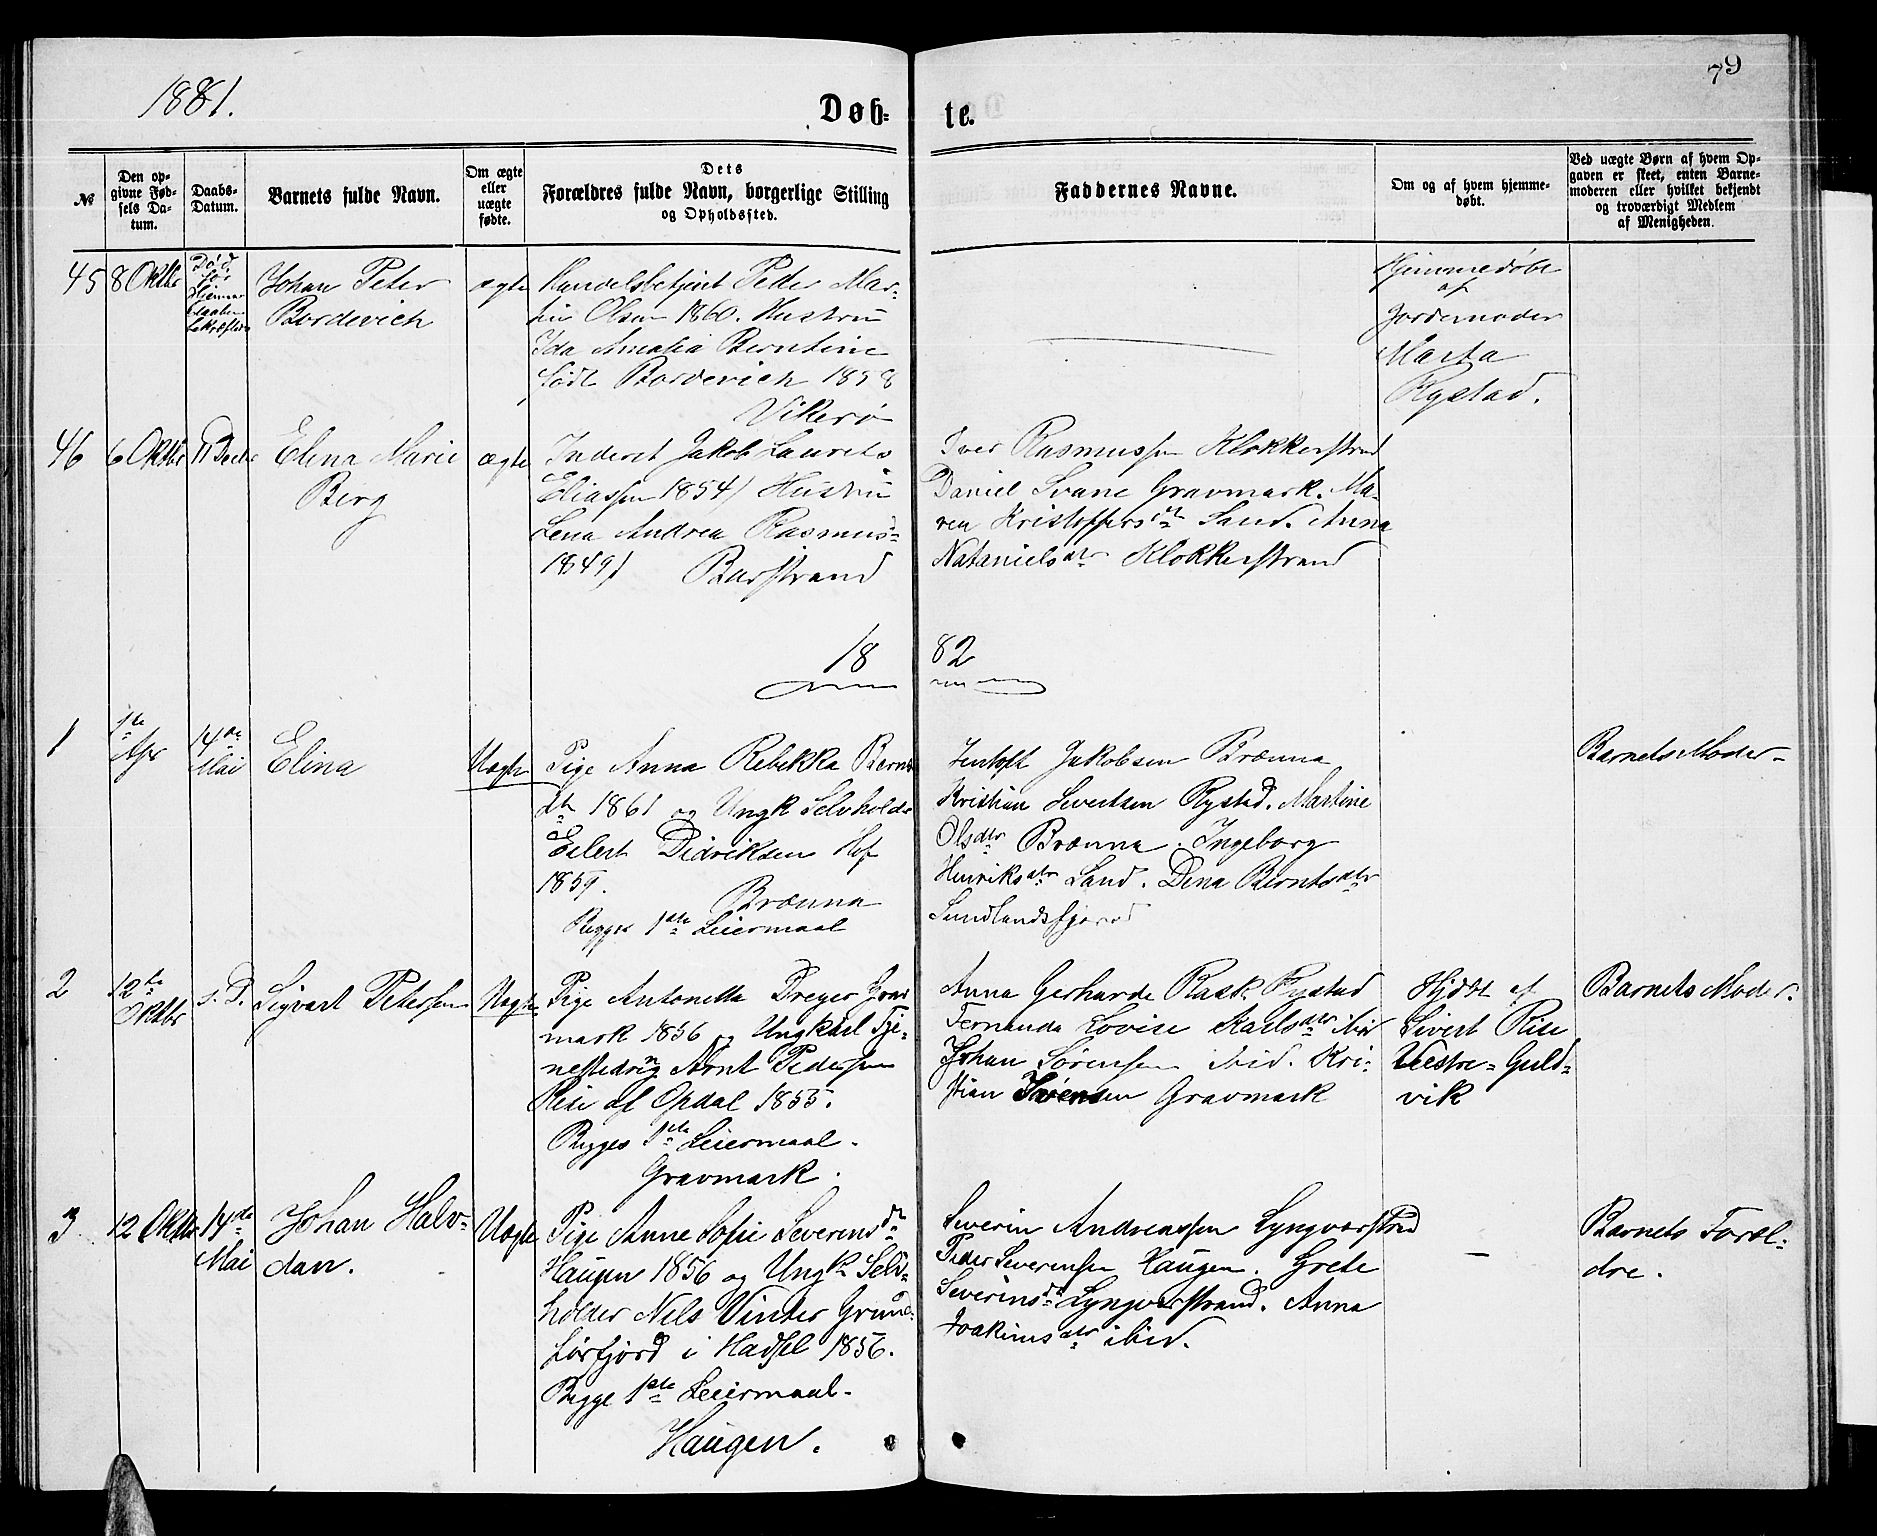 79
1881.
Døb-
te.
№
Den op-
givne Fød-
sels Da-
tum.
Daabs-
Datum.
Barnets fulde Navn.
Om ægte
eller
uægte
fødte.
Dets
Forældres fulde Navn, borgerlige Stilling
og Opholdssted.
Faddernes Navne.
Om og af hvem hjemme-
døbt.
Ved uægte Børn af hvem Op-
gaven er skeet, enten Barne-
moderen eller hvilket bekjendt
og troværdigt Medlem
af Menigheden.
45
8 Oktbr
Død
før
Hjemme-
daaben
bekræftedes
Johan Peter
Bordevich
ægte
Handelsbetjent Peder Mar-
tin Olsen 1860. Hustru
Ida Amalia Berntine
født Bordevich 1858
Vikerø
Hjemmedøbt
af
Jordemoder
Marta
Rystad.
46
6 Oktbr
11 Decbr
Elina Marie
Berg
ægte
Inderst Jakob Laurits
Eliassen 1854) Hustru
Lena Andrea Rasmus-
1849) Barstrand
Iver Rasmussen Klokkerstrand
Daniel Svane Gravmark. Ma-
ren Kristoffersdtr Sand. Anna
Natanielsdtr Klokkerstrand
18 82
1
1te
Apr
14de
Mai
Elina
Uægte
Pige Anna Rebekka Bernts
dtr 1861 og Ungk Selvholder
Eilert Didriksen Hof
1859.
Brænna
Begges 1ste Leiermaal
Jentoft Jakobsen Brænna
Kristian Sivertsen Rystad. Martine
Olsdtr Brænna. Ingeborg
Henriksdtr Sand. Dina Berntsdtr
Sundlandsfjorod
Barnets Moder-
2
12te
Oktbr
s. D.
Sigvart Petersen
Uægte
Pige Antonetta Dreyer Grav
mark 1856 og Ungkarl Tje-
nestedrng Arnt Pedersen
Rise af Opdal 1855.
Begges 1ste Leiermaal.
Gravmark.
Anna Gerharde Rask Rystad
Fernanda Lovise Karlsdtr ibid
Johan Sørensen ibid. Kri-
stian Sørensen Gravmark
Hjdbt af
Sivert Rise
Vestre-Guld-
vik
Barnets Moder.
3
12 Oktbr
14de
Mai
Johan Halv-
dan.
Uægte
Pige Anne Sofie Severinsdtr
Haugen 1856 og Ungk Selv-
holder Nels Vinter Grund-
førfjord i Hadsel 1856.
Begge 1ste Leiermaal.
Haugen.
Severin Andreassen Lyngværstrand
Peder Severinsen Haugen. Grete
Severinsdtr Lyngværstrand. Anna
Joakimsdtr ibid.
-
Barnets Foræl-
dre.